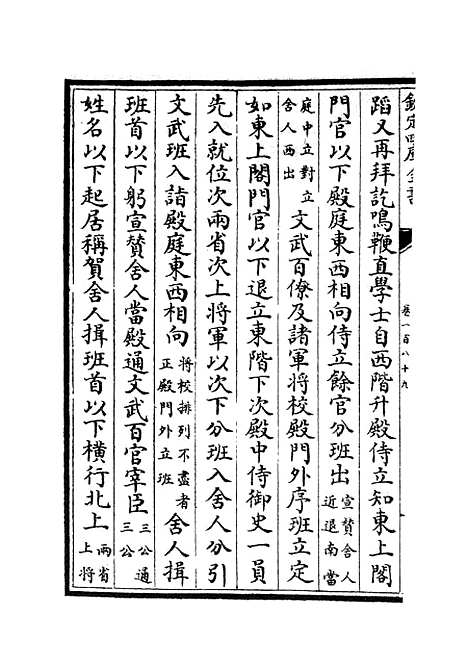 欽定四庫全書
卷一百八十九
蹈又再拜訖鳴鞭直學士自西階升殿侍立知東上閣
門官以下殿庭東西相向侍立餘官分班出宣贊舍人近退南當
庭中立對立舍人西出文武百僚及諸軍將校殿門外序班立定
如東上閣門官以下退立東階下次殿中侍御史一員
先入就位次兩省次上將軍以次下分班入舍人分引
文武班入詣殿庭東西相向將校排列不盡者正殿門外立班舍人揖
班首以下躬宣贊舍人當殿通文武百官宰臣三公通三公
姓名以下起居稱賀舍人揖班首以下橫行北上兩省上將